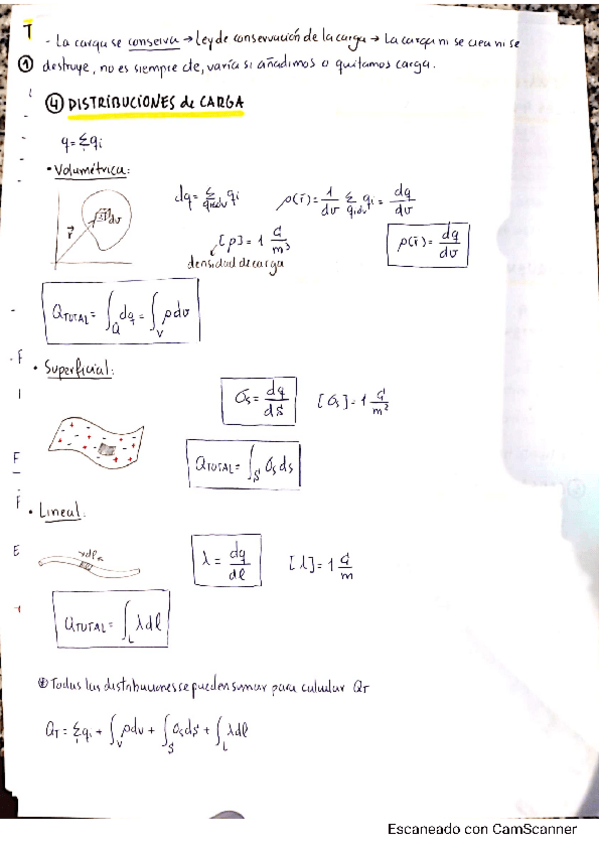 T
- La carga se conserva → Ley de conservación de la carga → La carga ni se crea ni se
① destruye, no es siempre cte, varía si añadimos o quitamos carga.
④ DISTRIBUCIONES de CARGA
q = Σ qi
• Volumétrica:
r̄ dv dq = Σ qi ρ(r̄) = 1/dv Σ qi = dq/dv
[ρ] = 1 C/m³ ρ(r̄) = dq/dv
densidad de carga
QTOTAL = ∫Q dq = ∫V ρdv
• Superficial:
σs = dq/ds [σs] = 1 C/m²
QTOTAL = ∫S σs ds
• Lineal:
dl λ = dq/dl [λ] = 1 C/m
QTOTAL = ∫L λdl
Todas las distribuciones se pueden sumar para calcular QT
QT = Σ qi + ∫V ρdv + ∫S σs ds + ∫L λdl
Escaneado con CamScanner